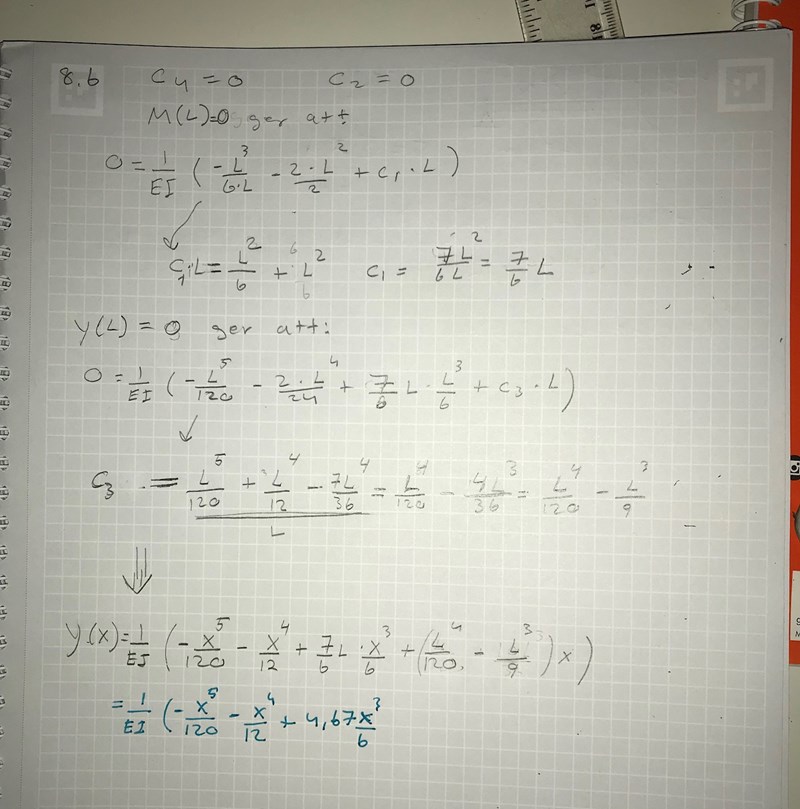 8.6 C4 = 0 C2 = 0
M(L)=0 ger att:
0 = 1/EI (-L^3/6·L - 2·L^2/2 + C1·L)
C1·L = L^2/6 + L^2 C1 = 7L^2/6L = 7/6 L
y(L) = 0 ger att:
0 = 1/EI (-L^5/120 - 2·L^4/24 + 7/6 L · L^3/6 + C3·L)
C3 = (L^5/120 + L^4/12 - 7L^4/36)/L = L^4/120 - 4L^3/36 = L^4/120 - L^3/9
y(x) = 1/EI (-x^5/120 - x^4/12 + 7/6 L · x^3/6 + (L^4/120 - L^3/9)x)
= 1/EI (-x^5/120 - x^4/12 + 4,67x^3/6